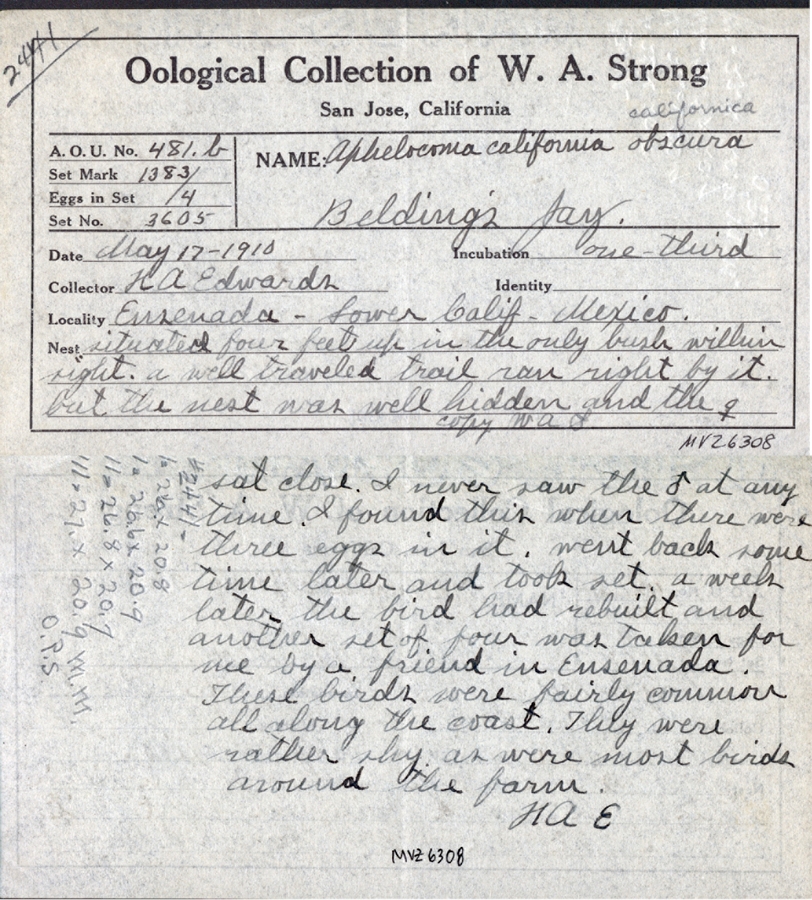 2441
Oological Collection of W. A. Strong
San Jose, California
californica
A. O. U. No. 481.b
NAME: Aphelocoma california obscura
Set Mark 1383/
Eggs in Set /4
Belding's Jay.
Set No. 3605
Date May 17-1910
Incubation one-third
Collector H A Edwards
Identity
Locality Ensenada - Lower Calif - Mexico.
Nest situated four feet up in the only bush within
sight. a well traveled trail ran right by it.
but the nest was well hidden and the ♀
copy W A S
MVZ 6308
sat close. I never saw the ♂ at any
time. I found this when there were
three eggs in it. went back some
time later and took set. a week
later the bird had rebuilt and
another set of four was taken for
me by a friend in Ensenada.
These birds were fairly common
all along the coast. They were
rather shy as were most birds
around the farm.
H A E
#2441-
26. x 20.8
26.6 x 20.9
11= 26.8 x 20.7
111= 27. x 20.9 M.M.
O.P.S
MVZ 6308